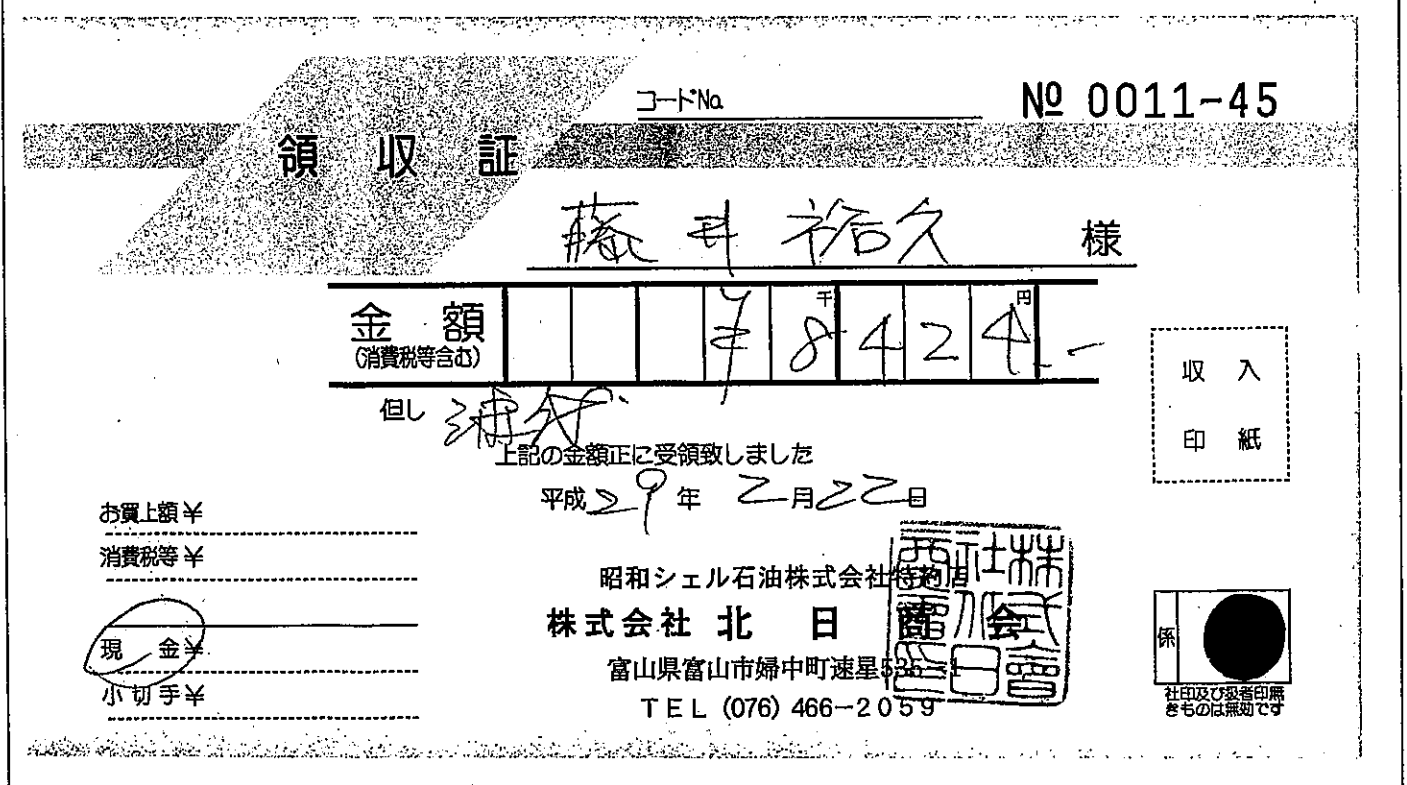 コードNo.
№ 0011-45
領収証
藤井裕久 様
金額 ¥8424.-
千 円
(消費税等含む)
但し 油代
上記の金額正に受領致しました
平成29年2月22日
お買上額¥
消費税等¥
現金¥
小切手¥
収入
印紙
昭和シェル石油株式会社特約店
株式会社 北日商会
富山県富山市婦中町速星535-1
TEL (076) 466-2059
係
社印及び扱者印無
きものは無効です